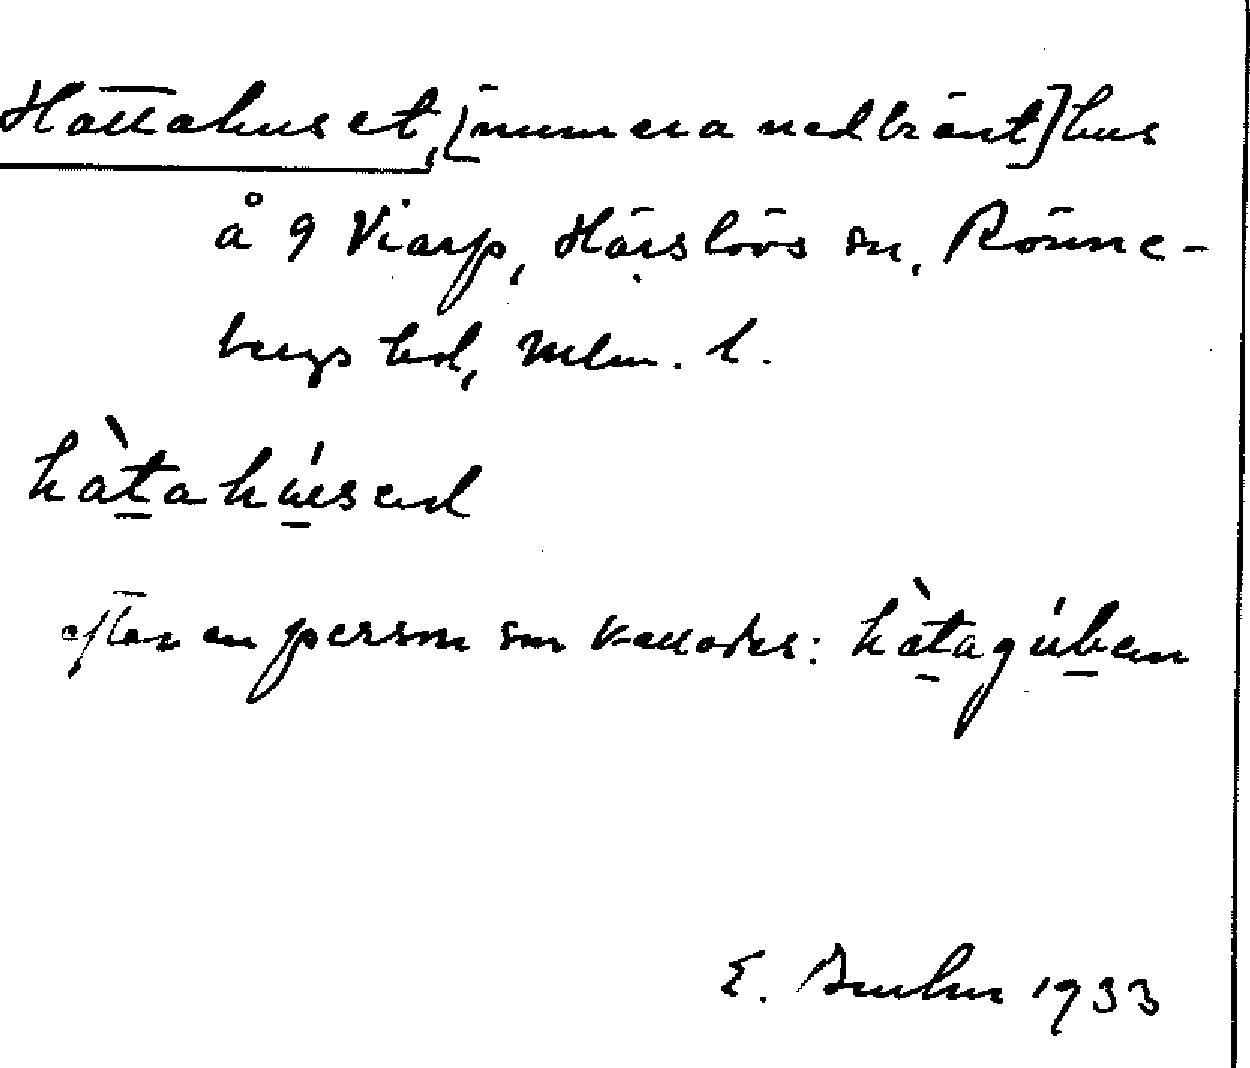 Hattahuset, [numera nedbränt] hus
å 9 Viarp, Härslövs sn, Rönne-
bergs hd, Mlm. l.
hàtahúsed
efter en person som kallades: hàtagúben
E. 1933